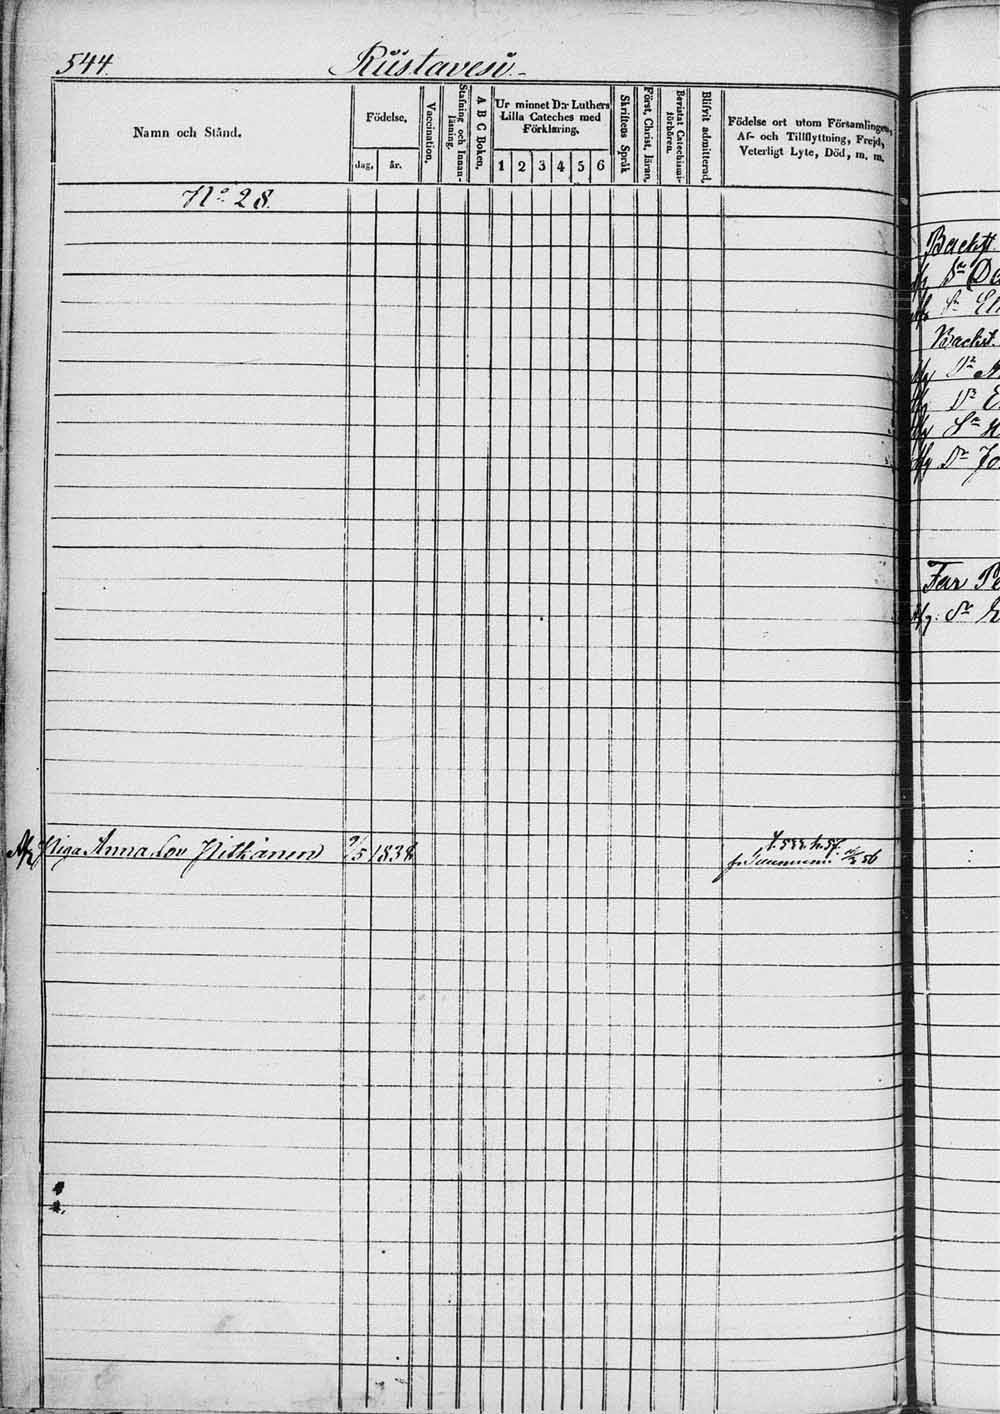 544.
Rüstavesi.
Namn och Stånd.
Födelse,
dag,
år.
Vaccination.
Stafning och Innanläsning.
A B C Boken.
Ur minnet D:r Luthers
Lilla Cateches med
Förklaring.
1 2 3 4 5 6
Skriftens Språk
Först. Christ. läran.
Bevistat Catechismiförhören.
Blifvit admitterad.
Födelse ort utom Församlingen,
Af- och Tillflyttning, Frejd,
Veterligt Lyte, Död, m. m.
N:o 28.
Piga Anna Lov Pitkänen 9/5 1838
56
Backst.
Dr
Sr
Backst.
Dr
Dr
Sr
Dr Jo
Far Pe
Sr